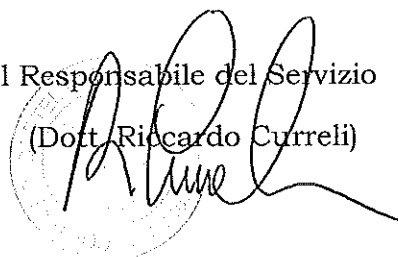 l Responsabile del Servizio
(Dott. Riccardo Curreli)